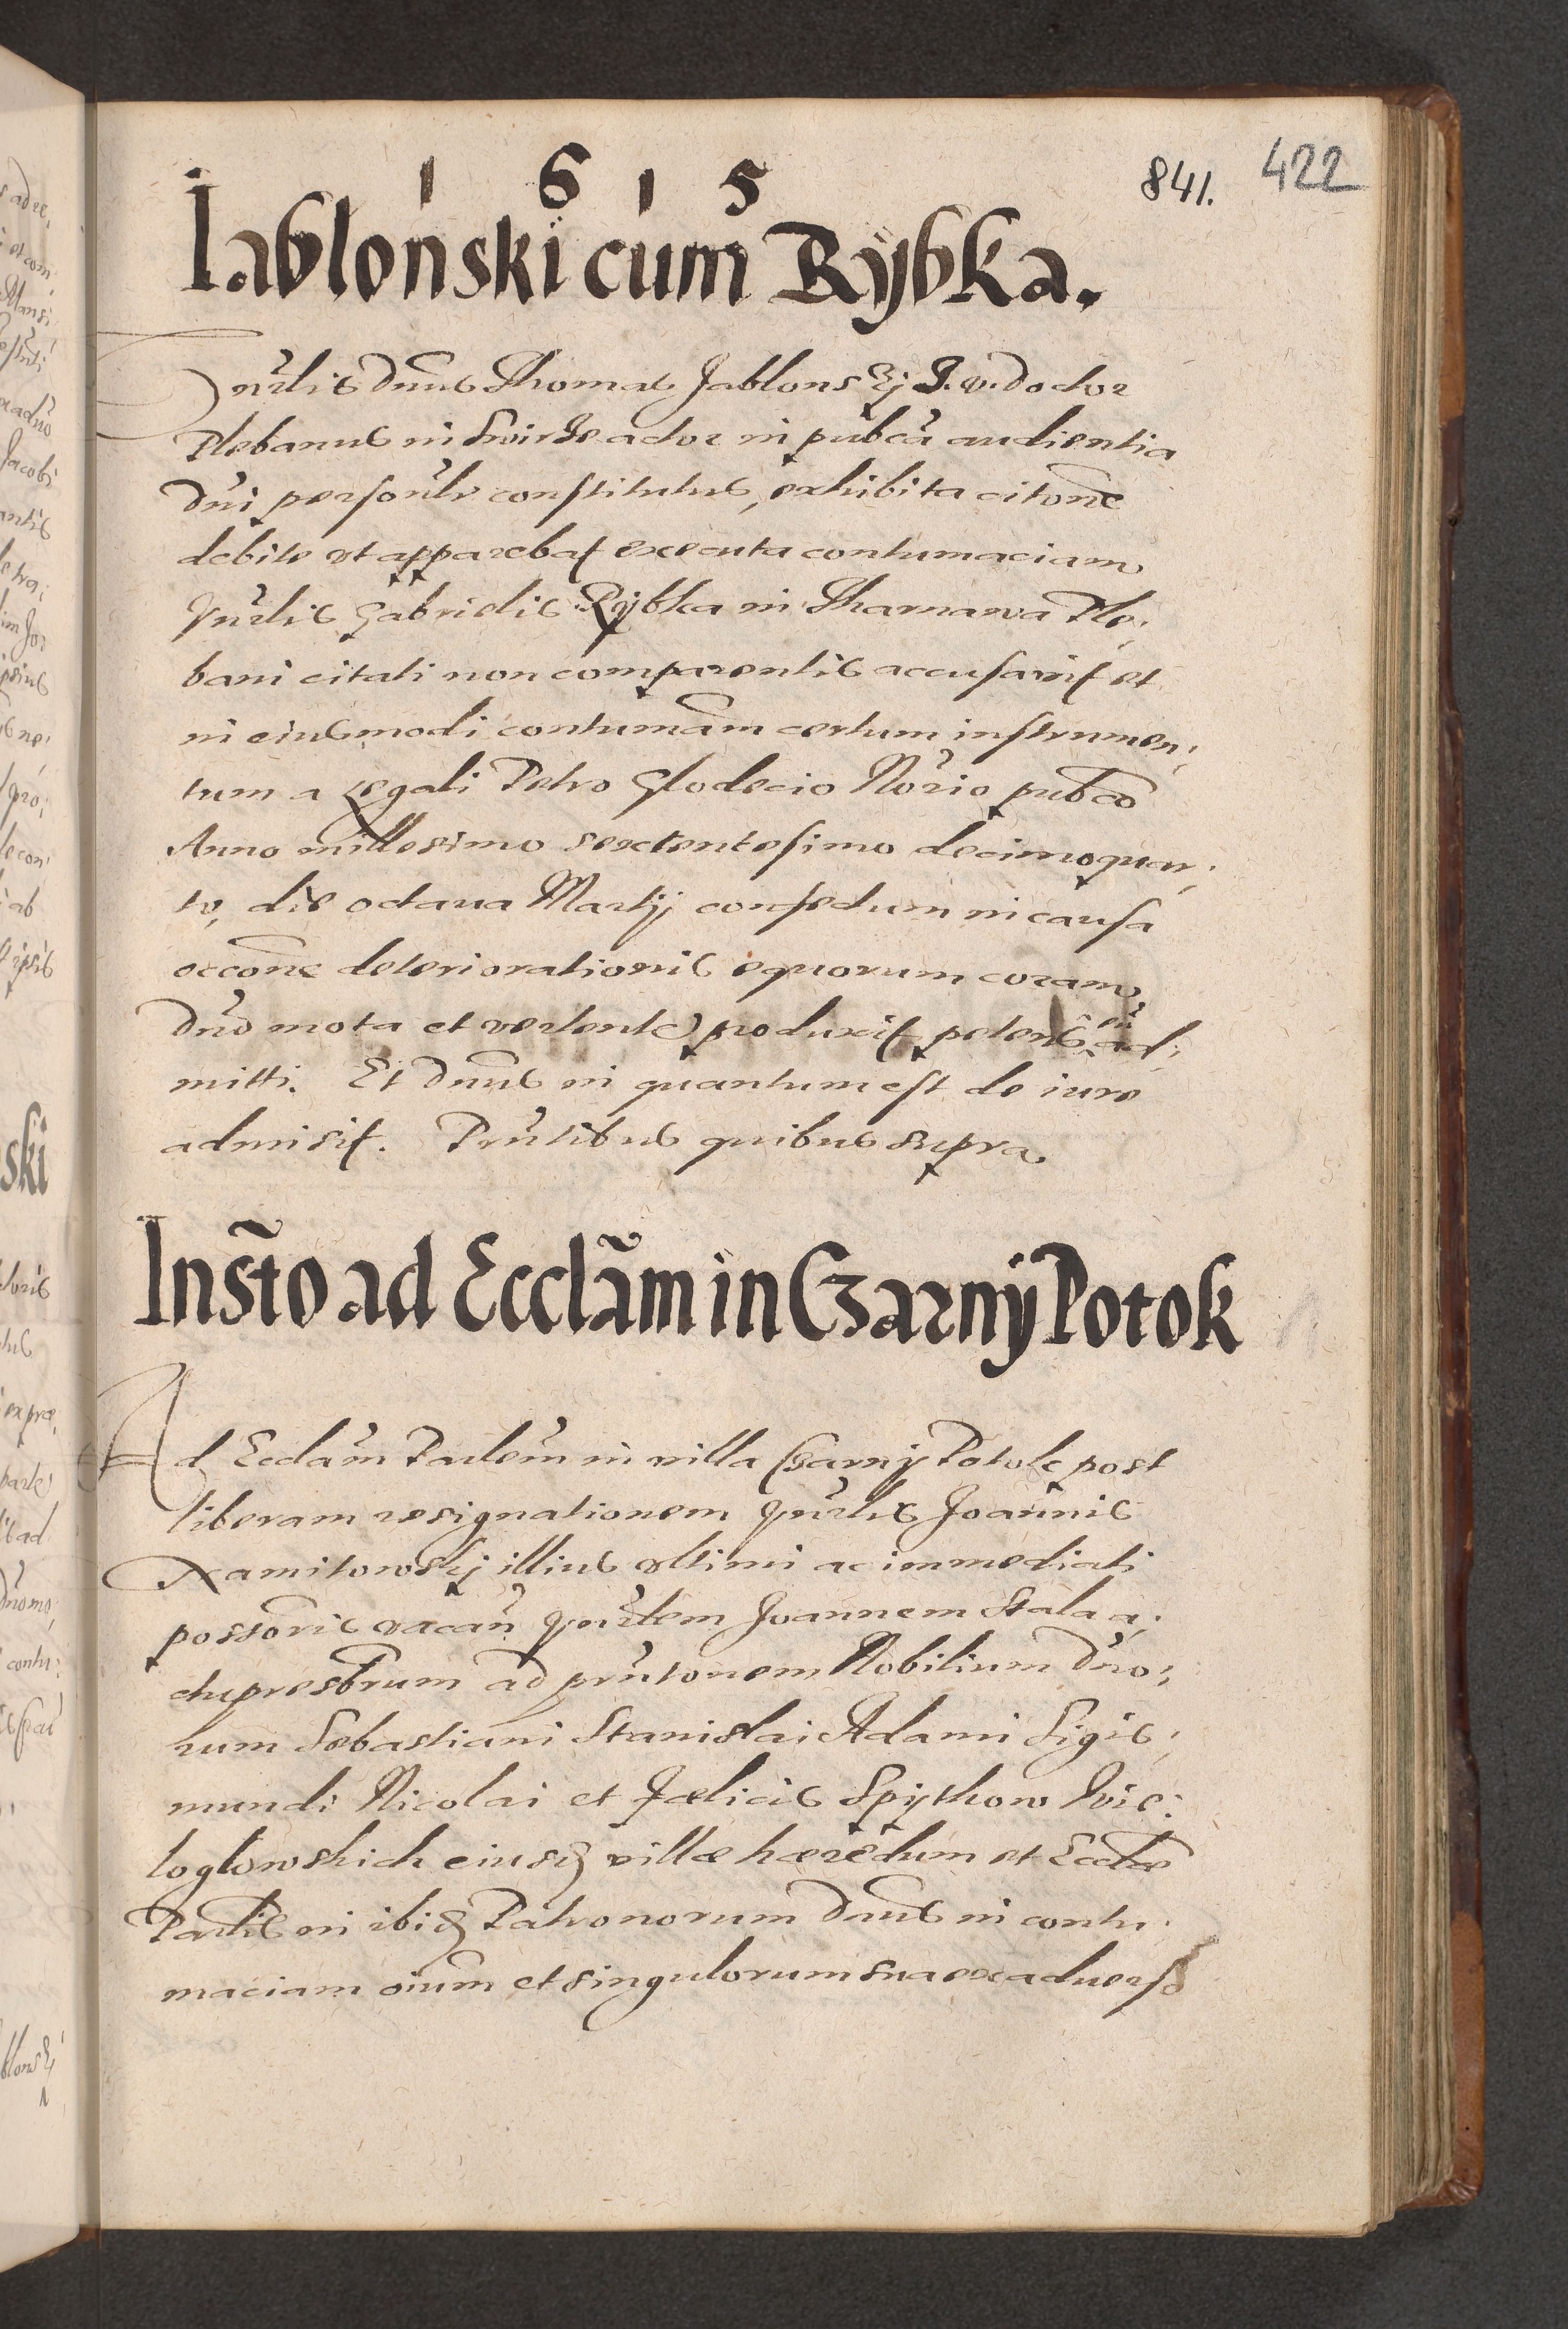 1 6 1 5
841. 422
Iablonski cum Rybka.
Vnrlis Dnus Thomas Jablonskj J. v. doctor
Plebanus in actor in pubca audientia
Dni personlr constitutus, exhibita citone
debite vt apparebat executa contumaciam
Vnrlis Gabrielis Rybka in Tharnawa Ple:
bani citati non comparentis accusavit et
in eiusmodi contumam certum instrumen:
tum a Legali Petro Glodecio Norio pubco
Anno millesimo sexcentesimo decimoquar:
to, die octaua Martij confectum in causa
occone deteriorationis equorum coram
Dno mota et vertente produxit petens eū ad:
mitti. Et Dnus in quantum est de iure
admisit. Pntibus quibus supra
Insto ad Ecclam in Czarny Potok
Ad Ecclam Parlem in villa Czarny Potok post
liberam resignationem Vnrlis Joannis
Xamitowskj illius vltimi ac immediati
possoris vacan Vnrlem Joannem Skala a:
chipresbrum ad pntonem Nobilium Dno:
rum Sebastiani Stanislai Adami Sigis:
mundi Nicolai et Fælicis Spythow Wie:
loglowskich eiusq villæ hæredum et Ecclæ
Parlis in ibiq Patronorum Dnus in contu:
maciam oium et singulorum sua ex aduerso